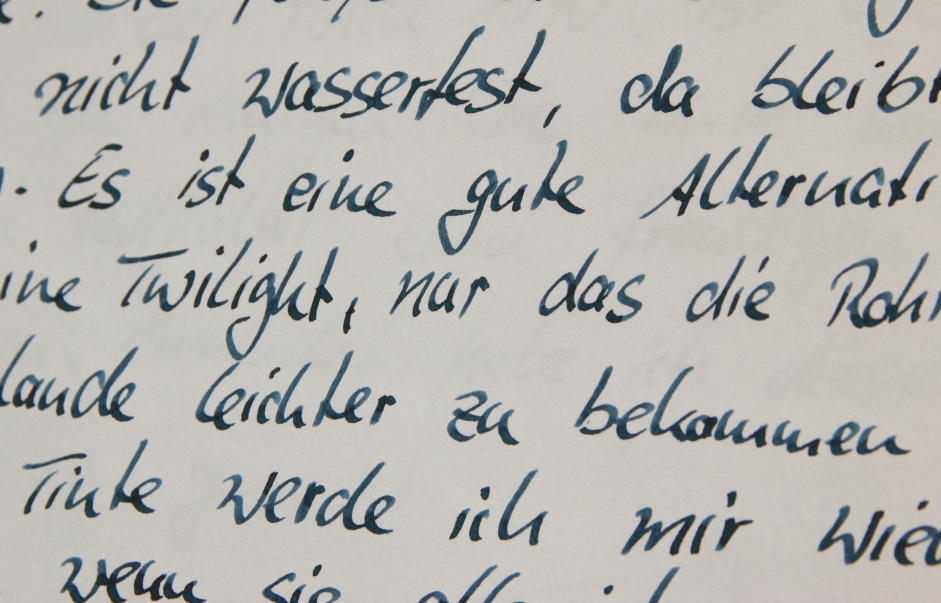 nicht wasserfest, da bleibt
. Es ist eine gute Alternati
ine Twilight, nur das die Rohr
lande leichter zu bekommen
Tinte werde ich mir wied
wenn sie